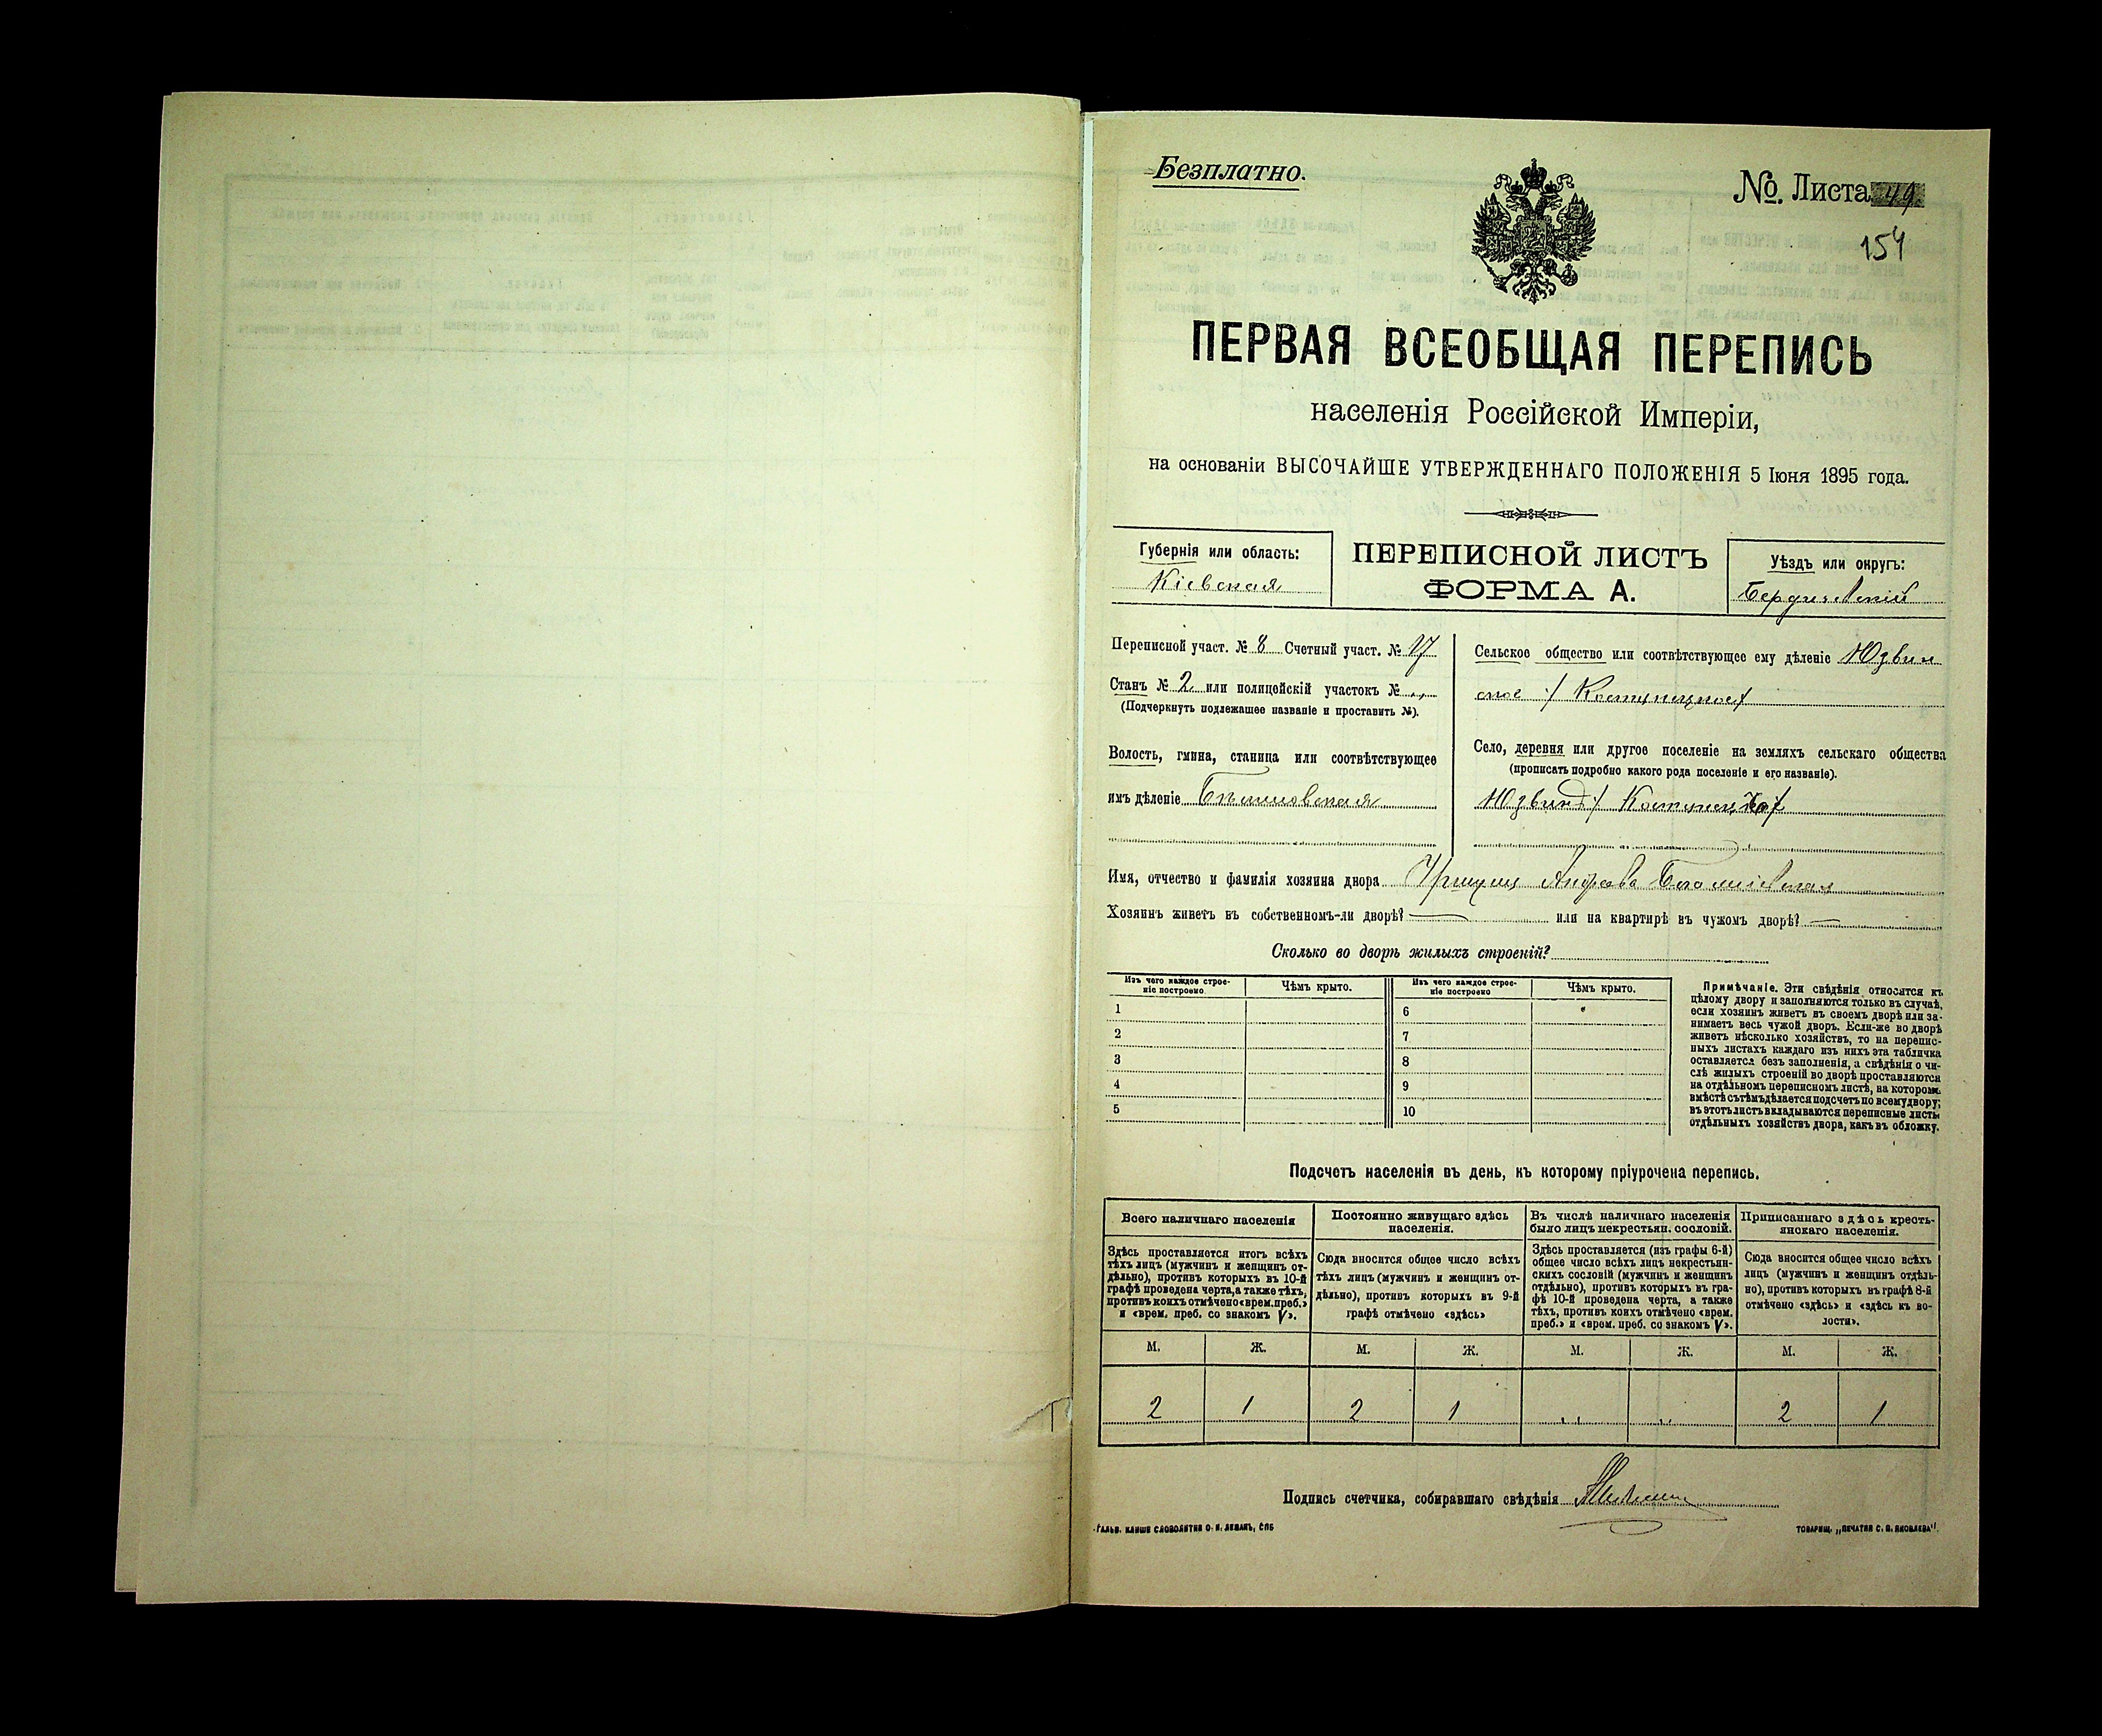 Безплатно.
№ Листа 49.
154
ПЕРВАЯ ВСЕОБЩАЯ ПЕРЕПИСЬ
населенія Россійской Имперіи,
на основаніи ВЫСОЧАЙШЕ УТВЕРЖДЕННАГО ПОЛОЖЕНІЯ 5 Іюня 1895 года.
Губернія или область:
Кіевская
ПЕРЕПИСНОЙ ЛИСТЪ
ФОРМА А.
Уѣздъ или округъ:
Бердичевскій
Переписной участ. № 8 Счетный участ. № 17
Станъ № 2 или полицейскій участокъ № „
(Подчеркнуть подлежащее названіе и проставить №).
Волость, гмина, станица или соотвѣтствующее
имъ дѣленіе
Сельское общество или соотвѣтствующее ему дѣленіе Юзвин
ское
Село, деревня или другое поселеніе на земляхъ сельскаго общества
(прописать подробно какого рода поселеніе и его названіе).
Юзвинъ
Имя, отчество и фамилія хозяина двора
Хозяинъ живетъ въ собственномъ-ли дворѣ? — или на квартирѣ въ чужомъ дворѣ? —
Сколько во дворѣ жилыхъ строеній?
Изъ чего каждое строе-
ніе построено
Чѣмъ крыто.
1
2
3
4
5
Изъ чего каждое строе-
ніе построено
Чѣмъ крыто.
6
7
8
9
10
Примѣчаніе. Эти свѣдѣнія относятся къ
цѣлому двору и заполняются только въ случаѣ,
если хозяинъ живетъ въ своемъ дворѣ или за-
нимаетъ весь чужой дворъ. Если-же во дворѣ
живетъ нѣсколько хозяйствъ, то на перепис-
ныхъ листахъ каждаго изъ нихъ эта табличка
оставляется безъ заполненія, а свѣдѣнія о чи-
слѣ жилыхъ строеній во дворѣ проставляются
на отдѣльномъ переписномъ листѣ, на которомъ
вмѣстѣ съ тѣмъ дѣлается подсчетъ по всему двору;
въ этотъ листъ вкладываются переписные листы
отдѣльныхъ хозяйствъ двора, какъ въ обложку.
Подсчетъ населенія въ день, къ которому пріурочена перепись.
Всего наличнаго населенія
Здѣсь проставляется итогъ всѣхъ
тѣхъ лицъ (мужчинъ и женщинъ от-
дѣльно), противъ которыхъ въ 10-й
графѣ проведена черта, а также тѣхъ,
противъ коихъ отмѣчено «врем. преб.»
и «врем. преб. со знакомъ V».
Постоянно живущаго здѣсь
населенія.
Сюда вносится общее число всѣхъ
тѣхъ лицъ (мужчинъ и женщинъ от-
дѣльно), противъ которыхъ въ 9-й
графѣ отмѣчено «здѣсь»
Въ числѣ наличнаго населенія
было лицъ некрестьян. сословій.
Здѣсь проставляется (изъ графы 6-й)
общее число всѣхъ лицъ некрестьян-
скихъ сословій (мужчинъ и женщинъ
отдѣльно), противъ которыхъ въ гра-
фѣ 10-й проведена черта, а также
тѣхъ, противъ коихъ отмѣчено «врем.
преб.» и «врем. преб. со знакомъ V».
Приписаннаго здѣсь кресть-
янскаго населенія.
Сюда вносится общее число всѣхъ
лицъ (мужчинъ и женщинъ отдѣль-
но), противъ которыхъ въ графѣ 8-й
отмѣчено «здѣсь» и «здѣсь къ во-
лости».
М. Ж. М. Ж. М. Ж. М. Ж.
2 1 2 1 „ „ 2 1
Подпись счетчика, собиравшаго свѣдѣнія
Гальв. клише словолитни О. И. Леманъ, СПБ
Товарищ. „Печатня С. П. Яковлева".